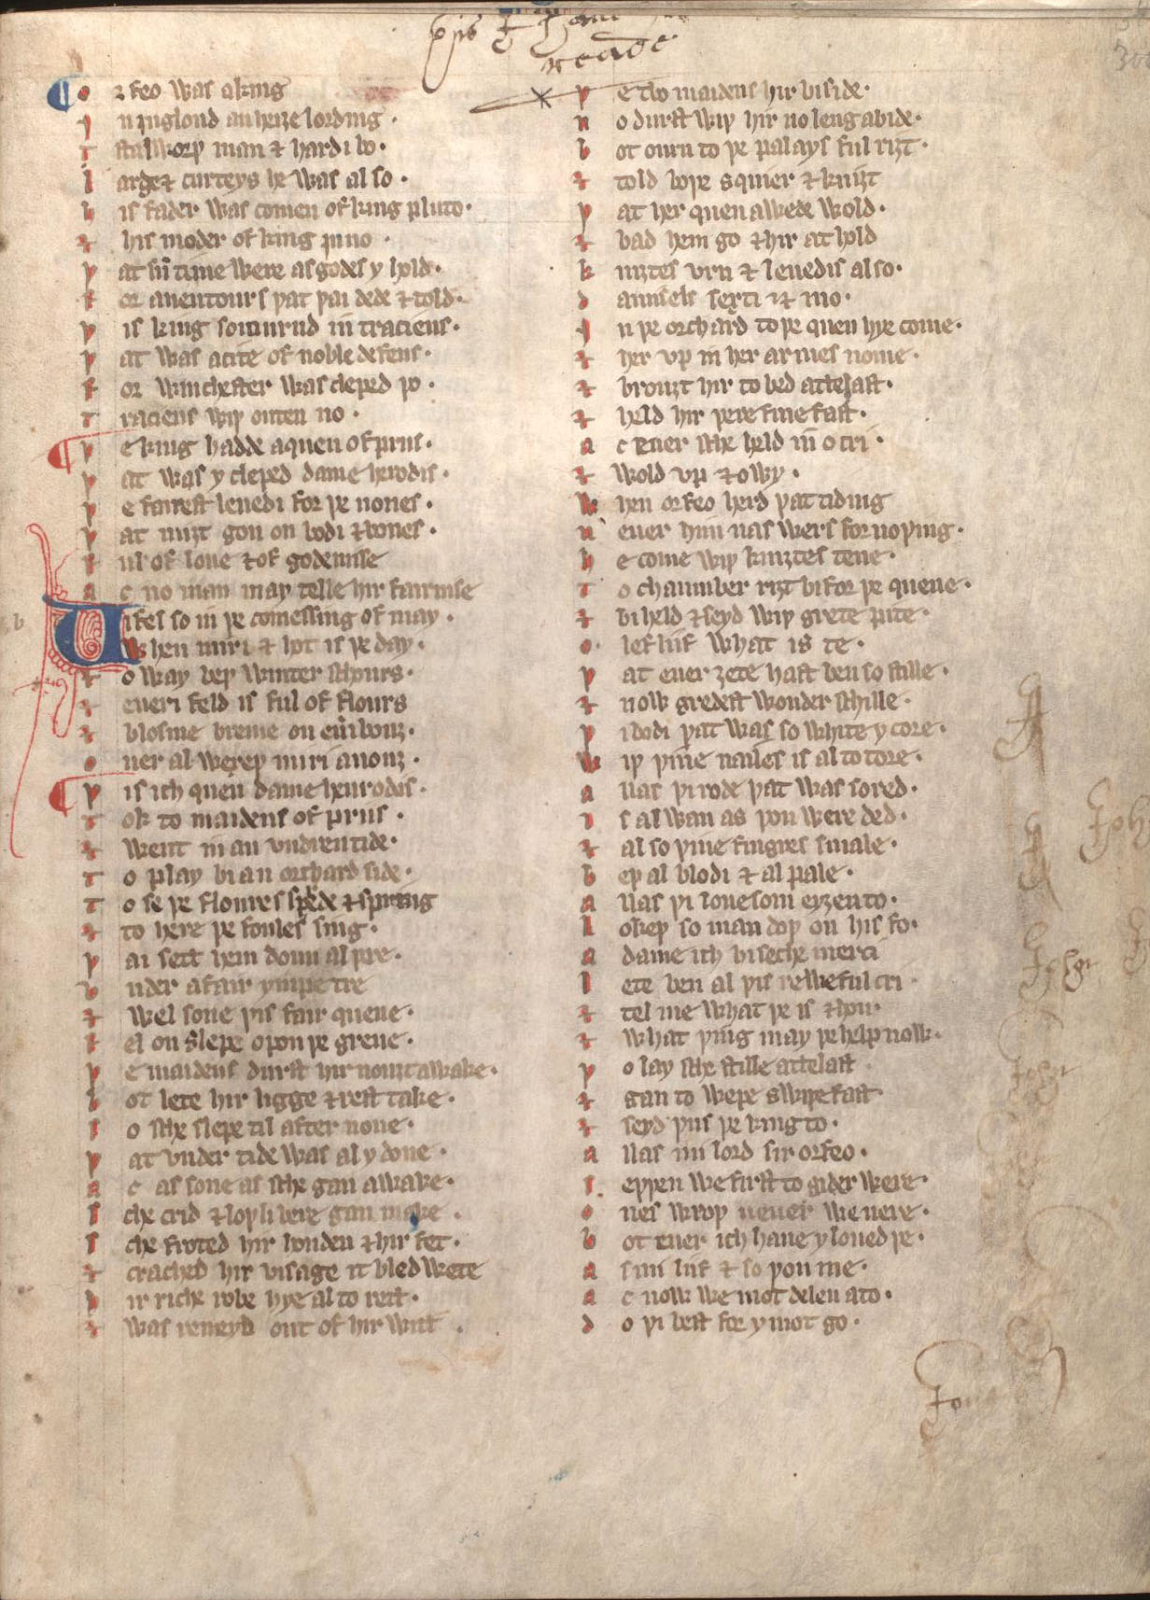 Orfeo was a king
In Inglond an heiȝe lording.
Stalworþ man & hardi bo.
Large & curteys he was al so.
His fader was comen of king pluto.
& his moder of king juno.
Þat su̅ time were as godes y hold.
For auentours þat þai dede & told.
Þis king soiournd in traciens.
Þat was a cite of noble defens.
For winchester was cleped þo.
Traciens wiþ outen no.
Þe king hadde a quen of priis.
Þat was y cleped dame herodis.
Þe fairest leuedi for þe nones.
Þat miȝt gon on bodi & bones.
Ful of loue & of godenisse
Ac no man may telle hir fairnise
Uifel so in þe comessing of may.
When miri & hot is þe day.
& o way beþ winter schours.
& eueri feld is ful of flours
& blosme breme on eu̅i bouȝ.
Ouer al wexeþ miri anouȝ.
Þis ich quen dame heurodis.
Tok to maidens of priis.
& went in an vndrentide.
To play bi an orchard side.
To se þe floures sprede & spring
& to here þe foules sing.
Þai sett hem doun al þre.
Vnder a fair ympe tre
& wel sone þis fair quene.
Fel on slepe opon þe grene.
Þe maidens durst hir nouȝt awake.
Bot lete hir ligge & rest take.
So sche slepe til after none.
Þat vnder tide was al y done.
Ac as sone as sche gan awake.
Sche crid & loþli bere gan make.
Sche froted hir honden & hir fet.
& crached hir visage it bled wete
Hir riche robe hye al to rett.
& was reueyd out of hir witt.
Þe two maidens hir biside.
No durst wiþ hir no leng abide.
Bot ourn to þe palays ful riȝt.
& told boþe squier & kniȝt
Þat her quen awede wold.
& bad hem go & hir at hold
Kniȝtes vrn & leuedis al so.
Damisels sexti & mo.
In þe orchard to þe quen hye come.
& her vp in her armes nome.
& brouȝt hir to bed atte last.
& held hir þere fine fast.
Ac euer sche held in̅ o cri.
& wold vp & owy.
When orfeo herd þat tiding
Neuer him nas wers for no þing.
He come wiþ kniȝtes tene.
To chaumber riȝt bifor þe quene.
& biheld & seyd wiþ grete pite.
O lef liif what is te.
Þat euer ȝete hast ben so stille.
& now gredest wonder schille.
Þi bodi þat was so white y core.
Wiþ þine nailes is al to tore.
Allas þi rode þat was so red.
Is al wan as þou were ded.
& al so þine fingres smale.
Beþ al blodi & al pale.
Allas þi louesom eyȝen to.
Lokeþ so man doþ on his fo.
A dame ich biseche merci
Lete ben al þis reweful cri.
& tel me what þe is & hou.
& what þing may þe help now.
Þo lay sche stille atte last
& gan to wepe swiþe fast
& seyd þus þe king to.
Allas mi lord sir orfeo.
Seþþen we first to gider were.
Ones wroþ neuer we nere.
Bot euer ich haue y loued þe.
As mi liif & so þou me.
Ac now we mot delen ato.
Do þi best for y mot go.